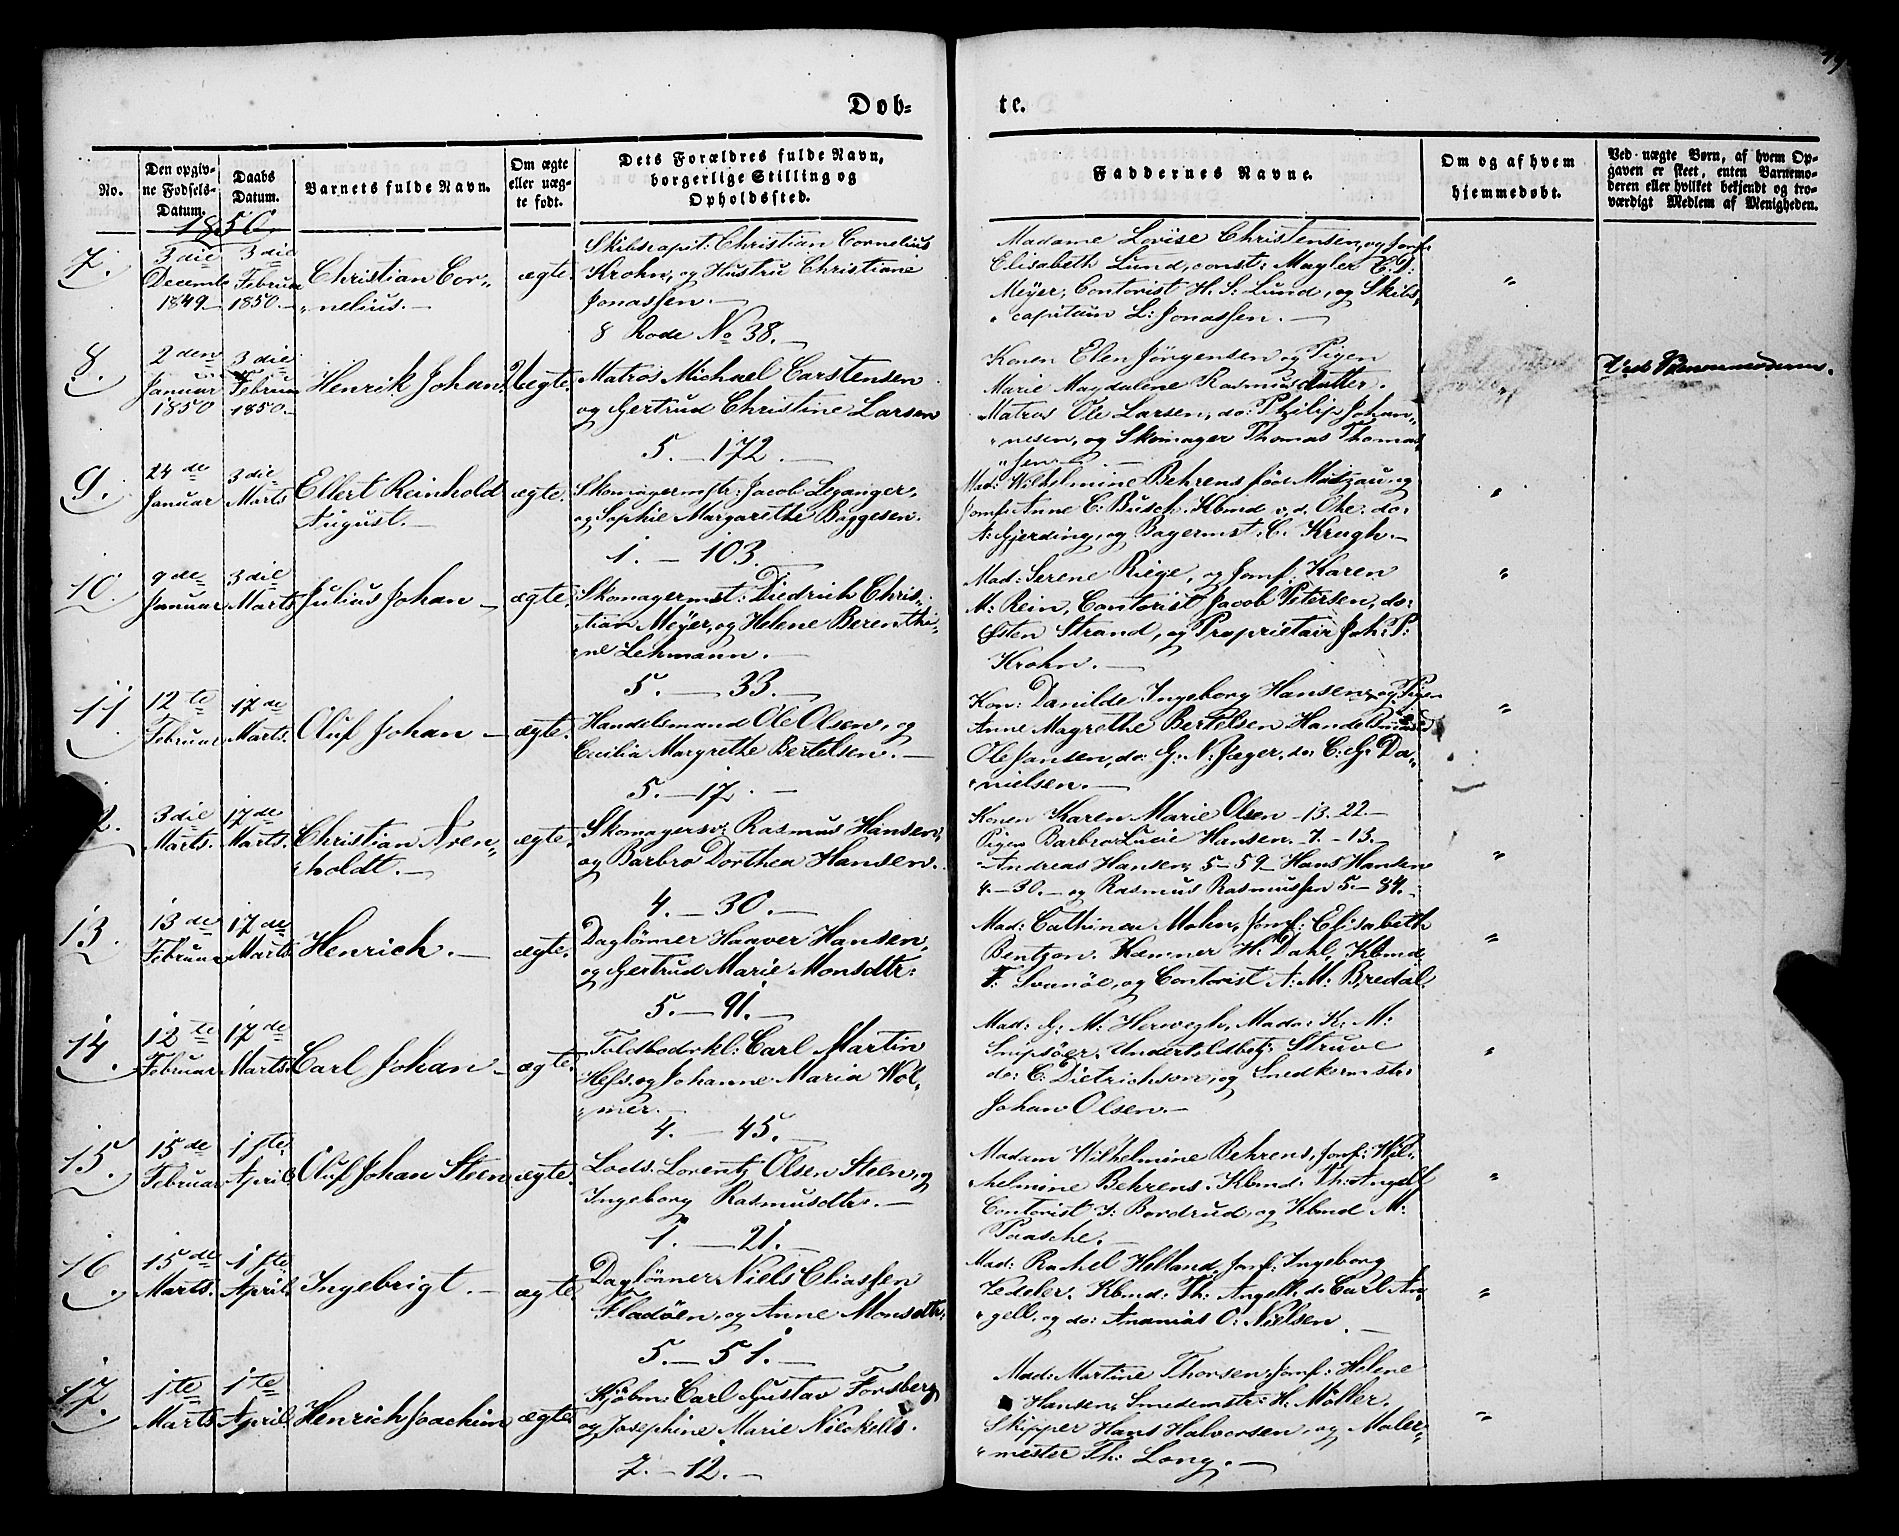 Døb-
te.
No.
Den opgiv-
ne Fødsels-
Datum.
Daabs
Datum.
Barnets fulde Navn.
Om ægte
eller uæg-
te født.
Dets Forældres fulde Navn,
borgerlige Stilling og
Opholdssted.
Faddernes Navne.
Om og af hvem
hjemmedøbt.
Ved uægte Børn, af hvem Op-
gaven er skeet, enten Barnemo-
deren eller hvilket bekjendt og tro-
værdigt Medlem af Menigheden.
1850.
7.
3die
Decemb
1849
3die
Februar
1850.
Christian Cor-
nelius.
ægte
Skibscapit: Christian Cornelius
Krohn, og Hustru Christiane
Jonassen.
8 Rode No 38.
Madame Lovise Christensen, og Jomf:
Elisabeth Lund, const: Mægler C. D:
Meyer, Contorist H. S. Lund, og Skibs-
capitain L: Jonassen.
"
8.
2den
Januar
1850
3die
Februar
1850.
Henrik Johan
Uegte.
Matros Michael Carstensen
og Gertrud Christine Larsen
5. — 172.
Konen Elen Jörgensen og Pigen
Marie Magdalene Rasmusdatter.
Matros Ole Larsen, do: Philip Johan-
nesen, og Skomager Thomas Thomas-
sen.
"
Ved Barnemoderen.
9.
24de
Januar
3die
Marts
Ellert Reinhold
August.
ægte.
Skomagermstr: Jacob Leganger,
og Sophie Margarethe Baggesen.
1. — 103.
Mad: Wilhelmine Behrens föd
Jomf: Anne C: Busch. Kbmd do:
A: Gjerding, og Bagermst: C. Krugh.
"
10.
9de
Januar
3die
Marts
Julius Johan
ægte.
Skomagermst: Diedrich Chris-
tian Meyer, og Helene Berenthi-
ne Lehmann.
5. — 33.
Mad: Serene Riege, og Jomf: Karen
M: Rein, Contorist Jacob Petersen, do:
Østen Strand, og Proprietair Joh: P:
Krohn.
"
11
12te
Februar
17de
Marts.
Oluf Johan
ægte.
Handelsmand Ole Olsen, og
Cecilia Margrethe Bertelsen.
5. — 17.
Kon: Danilde Ingeborg Hansen, og Pigen
Anne Magrethe Bertelsen Handelsmænd
Ole Jansen, do: G: N: Jæger, do: C: G: Da-
nielsen.
"
2.
3die
Marts.
17de
Marts.
Christian Aren-
holdt.
ægte.
Skomagersv: Rasmus Hansen,
og Barbro Dorthea Hansen.
4. — 30.
Konen Karen Marie Olsen 13. 22.
Pigen Barbro Lucie Hansen. 7. — 13.
Andreas Hansen, 5 — 59 Hans Hansen
4. — 30. — og Rasmus Rasmussen 5. — 84.
"
13.
13de
Februar
17de
Marts
Henrich.
ægte.
Daglönner Haaver Hansen,
og Gertrud Marie Monsdtr:
5. — 91.
Mad: Cathinca Mohn, Jomf: Elisabeth
Bentzon. Kæmner H. Dahl, Kbmd
F: Svanöe, og Contorist A: M: Bredal.
"
14.
12te
Februar
17de
Marts.
Carl Johan
ægte.
Toldbodrkl: Carl Martin
Hess, og Johanne Maria Wol-
mer.
4. — 45.
Mad: G: M: Herwegh, Mada: K: M:
Smpsöer. Undertoldbetj: Struve
do: C: Dietrichson, og Snedkermstr:
Johan Olsen.
"
15.
15de
Februar
1ste
April.
Oluf Johan Steen
ægte.
Lods. Lorentz Olsen Steen, og
Ingeborg Rasmusdtr.
1. — 21.
Madam Wilhelmine Behrens, Jomf: Wil-
helmine Behrens. Kbmd: Th: Angell
Contorist J: Bordrud, og Kbmd M:
Paasche.
"
16.
15de
Marts.
1ste
April.
Ingebrigt.
ægte
Daglönner Niels Eliassen
Fladöen, og Anne Monsdtr:
5. — 51.
Mad: Rachel Helland, Jomf: Ingeborg
Vedeler. Kbmd: Th: Angell. do Carl An-
gell, og do: Ananias O: Nielsen.
"
17.
1te
Marts
1te
April.
Henrich Joachim
ægte
Kjöbm: Carl Gustav Forsberg
og Josephine Marie Nieckells.
7. — 12.
Mad: Martine Thorsen. Jomf: Helene
Hansen, Smedemstr: H. Möller.
Skipper Hans Halvorsen, og Maler-
mester Th: Long.
"